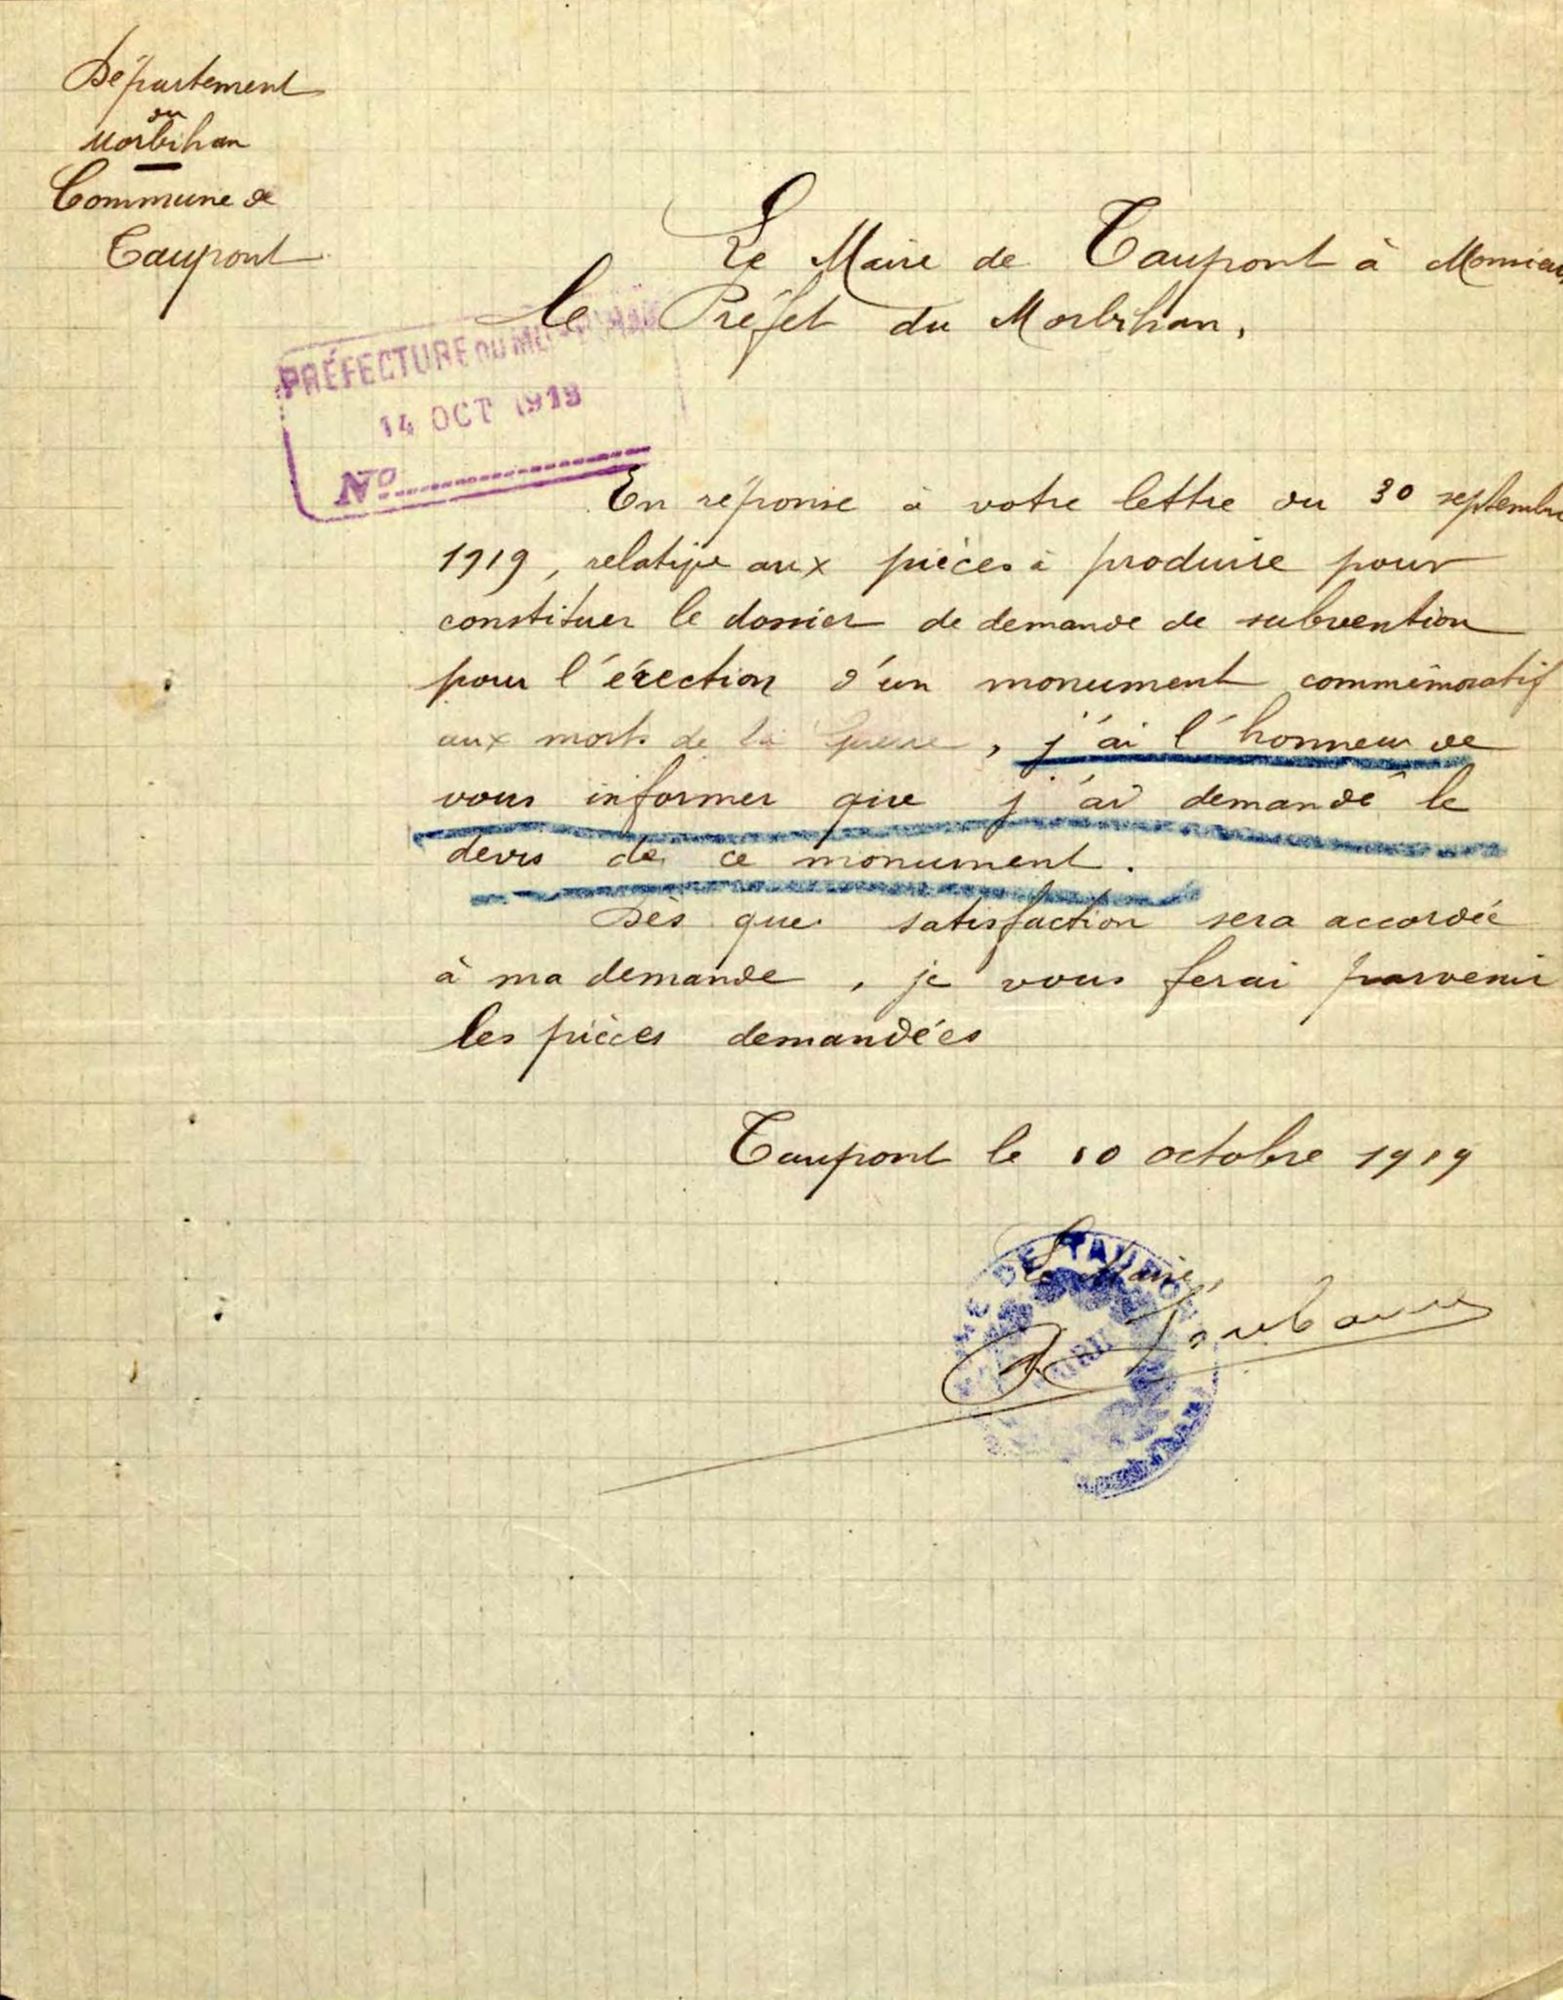 Département
du
Morbihan
Commune de
Taupont
Le Maire de Taupont à Monsieur
le Préfet du Morbihan,
PRÉFECTURE DU MORBIHAN
14 OCT 1919
No
En réponse à votre lettre du 30 septembre
1919, relative aux pièces à produire pour
constituer le dossier de demande de subvention
pour l'érection d'un monument commémoratif
aux morts de la Guerre, j'ai l'honneur de
vous informer que j'ai demandé le
devis de ce monument.
Dès que satisfaction sera accordée
à ma demande, je vous ferai parvenir
les pièces demandées
Taupont le 10 octobre 1919
Le Maire,
DE TAUPONT